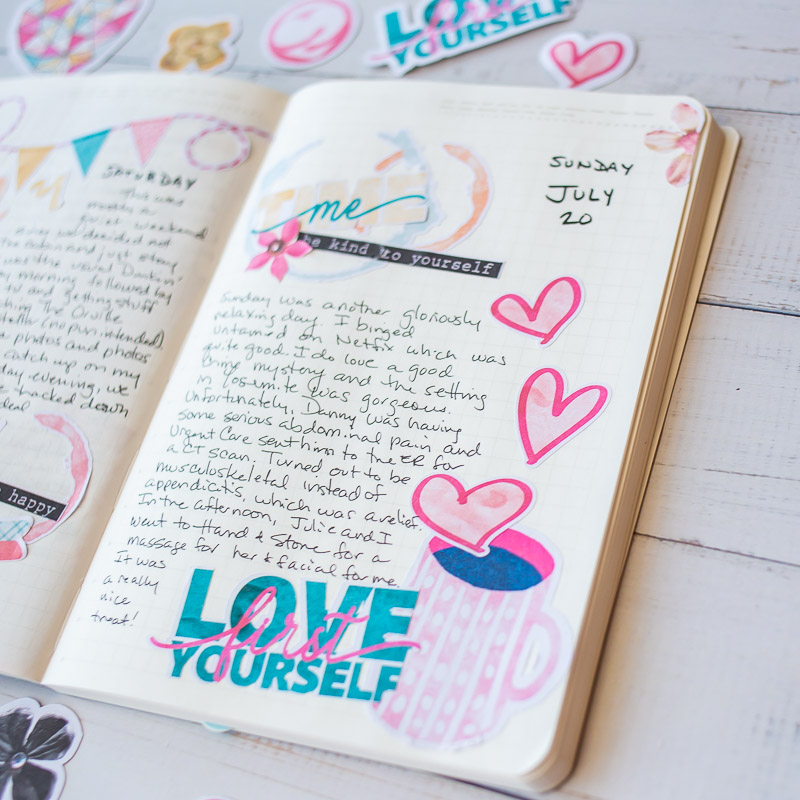 LOVE
first
YOURSELF
SATURDAY
This was
mostly a
quiet weekend
away we decided not
and just stay
was the usual Dunkin'
morning followed by
TV and getting stuff
The Orville
(no pun intended)
photos and photos
catch up on my
day evening, we
tracked down
deal
happy
SUNDAY
JULY
20
TIME
me
be kind to yourself
Sunday was another gloriously
relaxing day. I binged
Untamed on Netflix which was
quite good. I do love a good
crime mystery and the setting
in Yosemite was gorgeous.
Unfortunately, Danny was having
some serious abdominal pain and
Urgent Care sent him to the ER for
a CT scan. Turned out to be
musculoskeletal instead of
appendicitis, which was a relief.
In the afternoon, Julie and I
went to Hand & Stone for a
massage for her & facial for me.
It was
a really
nice
treat!
LOVE
first
YOURSELF